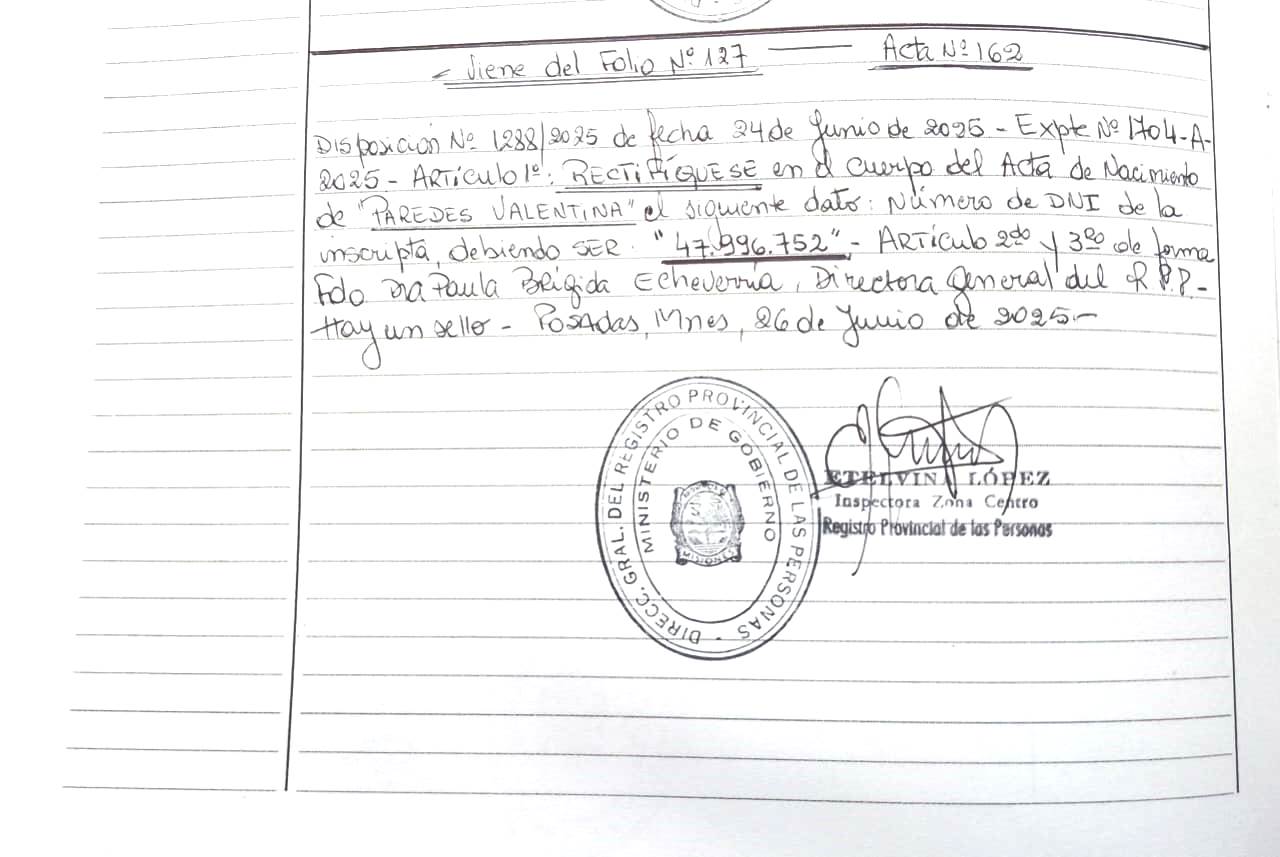 Viene del Folio Nº 127 — Acta Nº 162
Disposición Nº 1288/2025 de fecha 24 de Junio de 2025 - Expte Nº 1704-A-
2025 - Artículo 1º: RECTIFÍQUESE en el cuerpo del Acta de Nacimiento
de "PAREDES VALENTINA" el siguiente dato: Número de DNI de la
inscripta, debiendo SER: "47.996.752" - Artículo 2do y 3ro de forma
Fdo Dra Paula Brígida Echeverría, Directora General del R.P.P. -
Hay un sello - Posadas, Mnes, 26 de Junio de 2025.-
DIRECC. GRAL. DEL REGISTRO PROVINCIAL DE LAS PERSONAS -
MINISTERIO DE GOBIERNO
MISIONES
ETELVINA LÓPEZ
Inspectora Zona Centro
Registro Provincial de las Personas